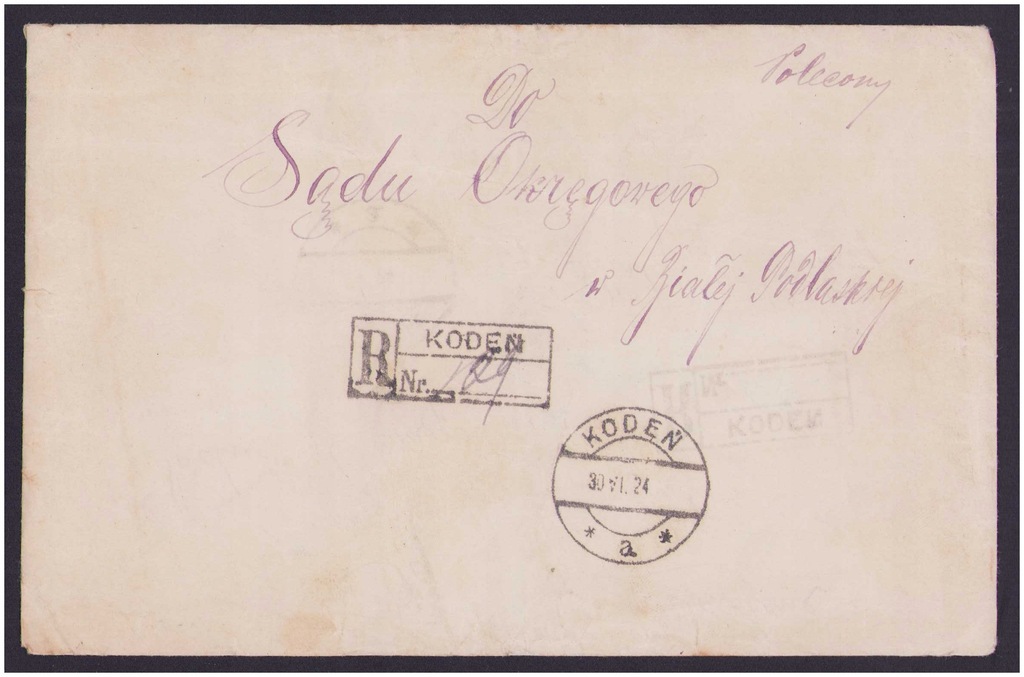 Polecony
Do
Sądu Okręgowego
w Białej Podlaskiej
R KODEŃ
Nr. 189
KODEŃ
30 VI. 24
* a *
Nr.
KODEŃ